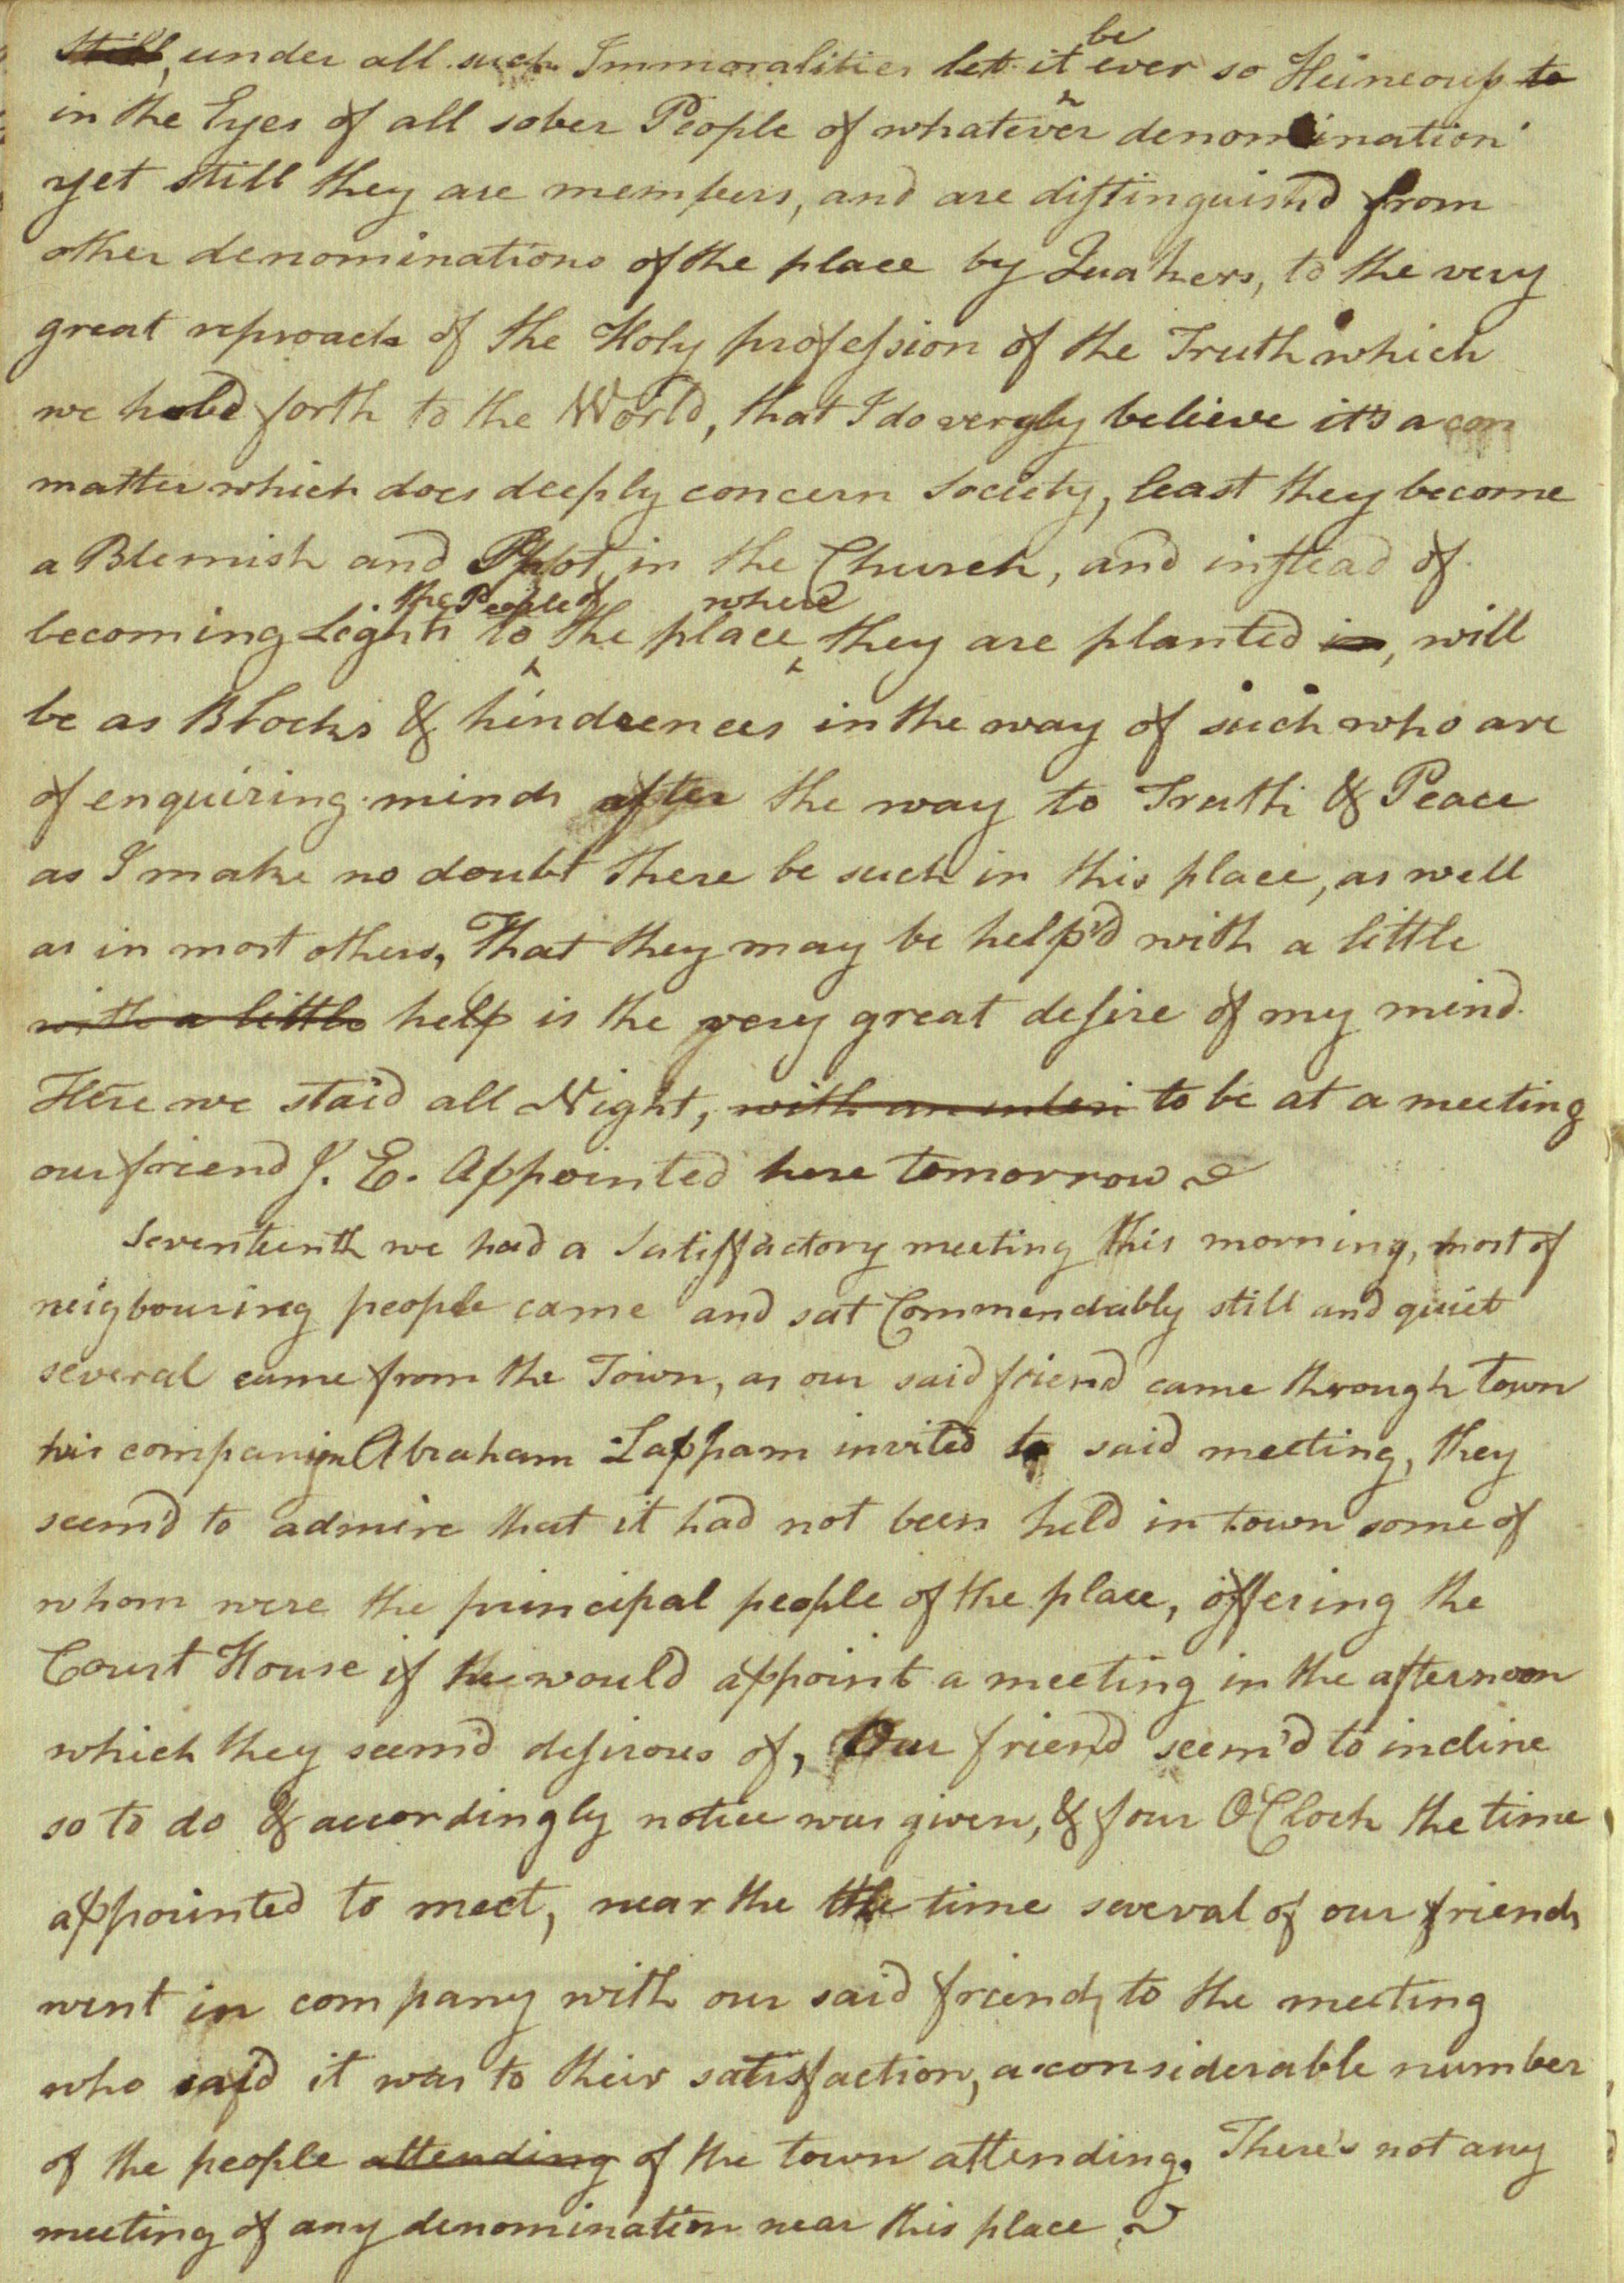 Still, under all such Immoralities let it be ever so Heineous to
in the Eyes of all sober People of whatever denomination
yet still they are members, and are distinguish'd from
other denominations of the place by Quakers, to the very
great reproach of the Holy profession of the Truth which
we hold forth to the World, that I do veryly believe it's a con
matter which does deeply concern Society, least they become
a Blemish and Spot in the Church, and instead of
becoming Lights to the People of the place where they are planted in, will
be as Blocks & hindrences in the way of such who are
of enquiring minds after the way to Truth & Peace
as I make no doubt there be such in this place, as well
as in most others, That they may be help'd with a little
with a little help is the very great desire of my mind.
Here we staid all Night, with an inten to be at a meeting
our friend J. E. Appointed here tomorrow
Seventeenth we had a Satisfactory meeting this morning, most of
neigbouring people came and sat Commendably still and quiet
several came from the Town, as our said friend came through Town
his companion Abraham Lapham invited to said meeting, they
seem'd to admire that it had not been held in town some of
whom were the principal people of the place, offering the
Court House if he would appoint a meeting in the afternoon
which they seem'd desirous of, Our friend seem'd to incline
so to do & accordingly notice was given, & four OClock the time
appointed to meet, near the the time several of our friends
went in company with our said friends to the meeting
who said it was to their satisfaction, a considerable number
of the people attending of the town attending. There's not any
meeting of any denomination near this place